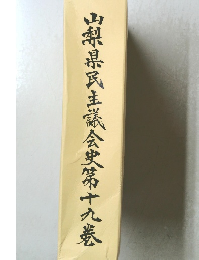 山梨県民主議会史第十九巻